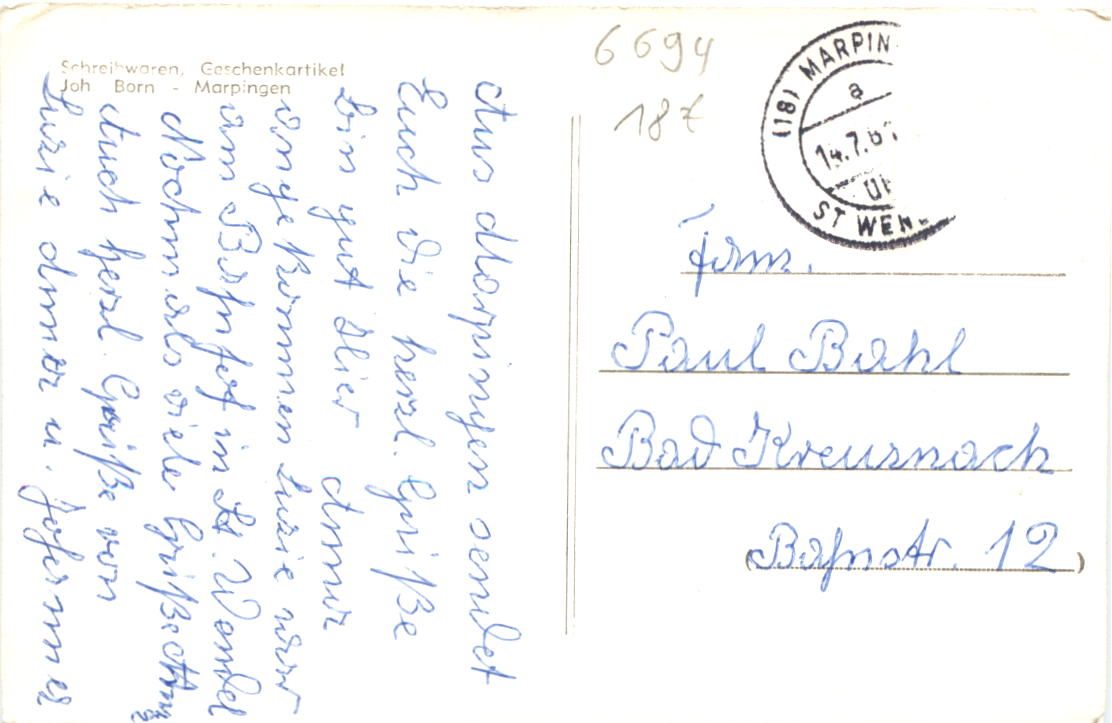 Schreibwaren, Geschenkartikel
Joh Born - Marpingen
Aus Marpingen sendet
Euch die herzl. Grüße
bin gut hier Anna
angekommen Luzie war
am Bahnhof in St. Wendel
Nochmals viele Grüße Anna
Auch herzl. Grüße von
Luzie Anna u. Johannes
6694
18
(18) MARPIN
a
14.7.61
ST WEN
Fam.
Paul Bahl
Bad Kreuznach
(Bahnstr. 12)